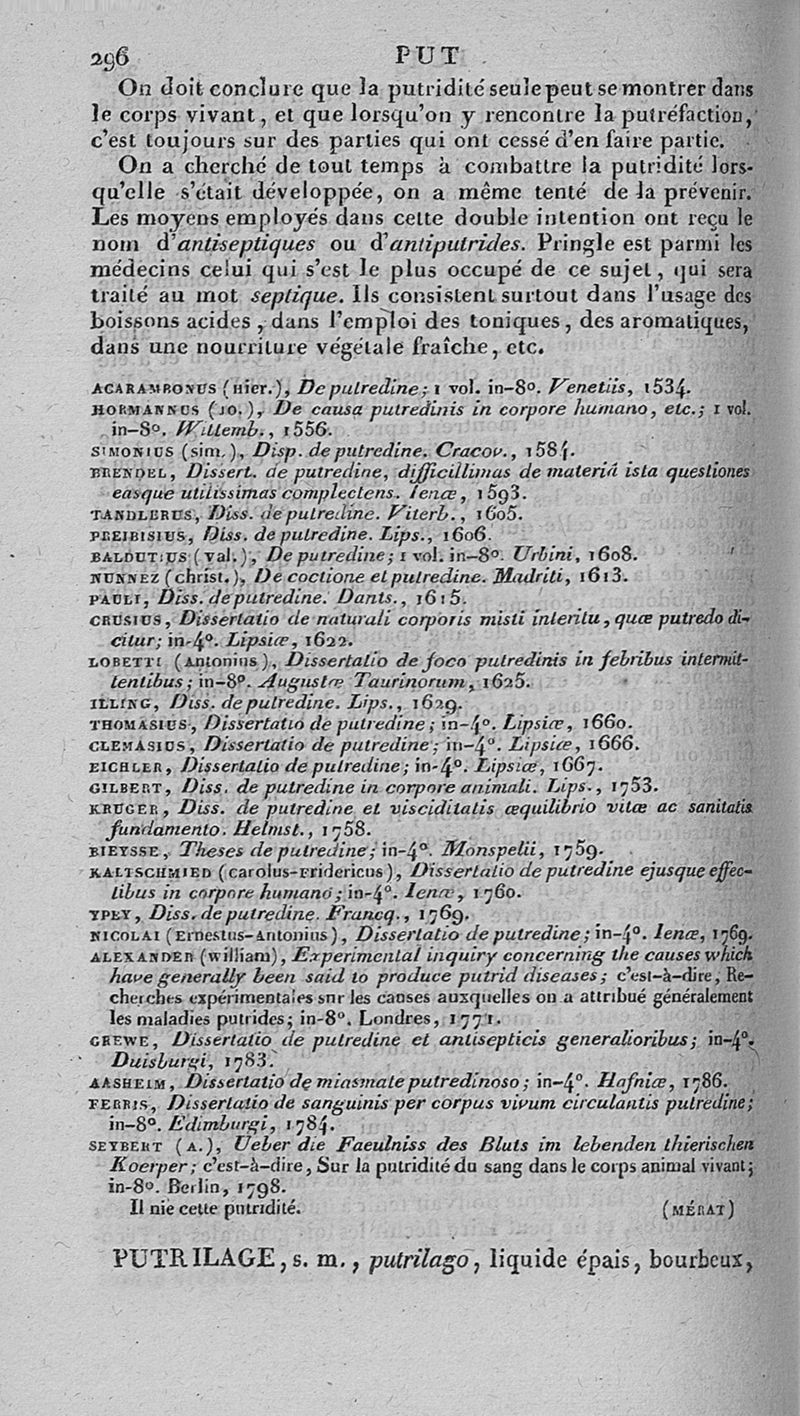 296 PUT
On doit conclure que la putridité seule peut se montrer dans
le corps vivant, et que lorsqu'on y rencontre la putréfaction,
c'est toujours sur des parties qui ont cessé d'en faire partie.
On a cherché de tout temps à combattre la putridité lors-
qu'elle s'était développée, on a même tenté de la prévenir.
Les moyens employés dans cette double intention ont reçu le
nom d'antiseptiques ou d'antiputrides. Pringle est parmi les
médecins celui qui s'est le plus occupé de ce sujet, qui sera
traité au mot septique. Ils consistent surtout dans l'usage des
boissons acides, dans l'emploi des toniques, des aromatiques,
dans une nourriture végétale fraîche, etc.
ACARAMBONUS (Hier.), De putredine; 1 vol. in-8o. Venetiis, 1534.
HORMANNUS (jo.), De causa putredinis in corpore humano, etc.; 1 vol.
in-8o. Wittemb., 1556.
SIMONIUS (sim.), Disp. de putredine. Cracov., 1584.
BRENDEL, Dissert. de putredine, difficillimas de materiâ ista questiones
easque utilissimas complectens. Ienæ, 1593.
TANDLERUS, Diss. de putredine. Viterb., 1605.
PREIBISIUS, Diss. de putredine. Lips., 1606.
BALDUTIUS (val.), De putredine; 1 vol. in-8o. Urbini, 1608.
NUNNEZ (christ.), De coctione et putredine. Madriti, 1613.
PAULI, Diss. de putredine. Dants., 1615.
CRUSIUS, Dissertatio de naturali corporis misti interitu, quæ putredo di-
citur; in-4o. Lipsiæ, 1622.
LOBETTI (Antonius), Dissertatio de foco putredinis in febribus intermit-
tentibus; in-8o. Augustæ Taurinorum, 1625.
ILLING, Diss. de putredine. Lips., 1629.
THOMASIUS, Dissertatio de putredine; in-4o. Lipsiæ, 1660.
CLEMASIUS, Dissertatio de putredine; in-4o. Lipsiæ, 1666.
EICHLER, Dissertatio de putredine; in-4o. Lipsiæ, 1667.
GILBERT, Diss. de putredine in corpore animali. Lips., 1753.
KRUGER, Diss. de putredine et visciditatis æquilibrio vitæ ac sanitatis
fundamento. Helmst., 1758.
BIEYSSE, Theses de putredine; in-4o. Monspelii, 1759.
KALTSCHMIED (carolus-Fridericus), Dissertatio de putredine ejusque effec-
tibus in corpore humano; in-4o. Ienæ, 1760.
YPEY, Diss. de putredine. Francq., 1769.
NICOLAI (Ernestus-Antonius), Dissertatio de putredine; in-4o. Ienæ, 1769.
ALEXANDER (william), Experimental inquiry concerning the causes which
have generally been said to produce putrid diseases; c'est-à-dire, Re-
cherches expérimentales sur les causes auxquelles on a attribué généralement
les maladies putrides; in-8o. Londres, 1771.
GREWE, Dissertatio de putredine et antisepticis generalioribus; in-4o.
Duisburgi, 1783.
AASHEIM, Dissertatio de miasmate putredinoso; in-4o. Hafniæ, 1786.
FERRIS, Dissertatio de sanguinis per corpus vivum circulantis putredine;
in-8o. Edimburgi, 1784.
SEYBERT (A.), Ueber die Faeulniss des Bluts im lebenden thierischen
Koerper; c'est-à-dire, Sur la putridité du sang dans le corps animal vivant;
in-8o. Berlin, 1798.
Il nie cette putridité. (MÉRAT)
PUTRILAGE, s. m., putrilago, liquide épais, bourbeux,